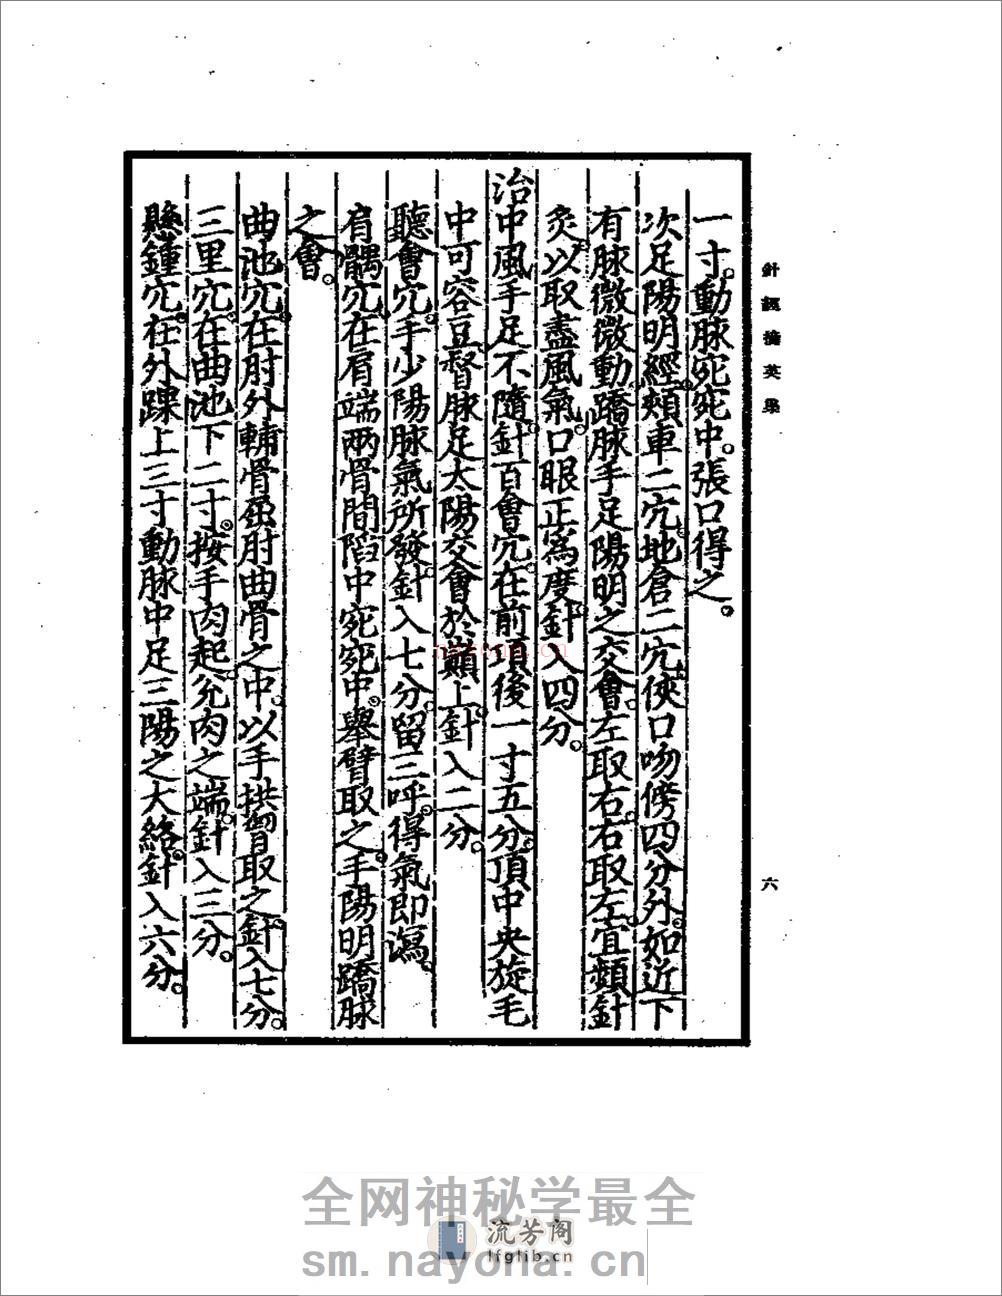 針經摘英集
六
一寸。動脉宛宛中。張口得之。
次足陽明經。頰車二穴。地倉二穴。俠口吻傍四分外。如近下
有脉微微動。蹻脉手足陽明之交會。左取右。右取左。宜頻針
灸。以取盡風氣。口眼正爲度。針入四分。
治中風手足不隨。針百會穴。在前項後一寸五分。頂中央旋毛
中可容豆。督脉足太陽交會於巔上。針入二分。
聽會穴。手少陽脉氣所發。針入七分。留三呼。得氣即瀉。
肩髃穴。在肩端兩骨間陷中宛宛中。舉臂取之。手陽明蹻脉
之會。
曲池穴。在肘外輔骨屈肘曲骨之中。以手拱胷取之。針入七分。
三里穴。在曲池下二寸。按手肉起。兊肉之端。針入三分。
懸鍾穴。在外踝上三寸動脉中足三陽之大絡。針入六分。
nayona.cn
全网神秘学最全
流芳阁
lfglib.cn
sm.nayona.cn